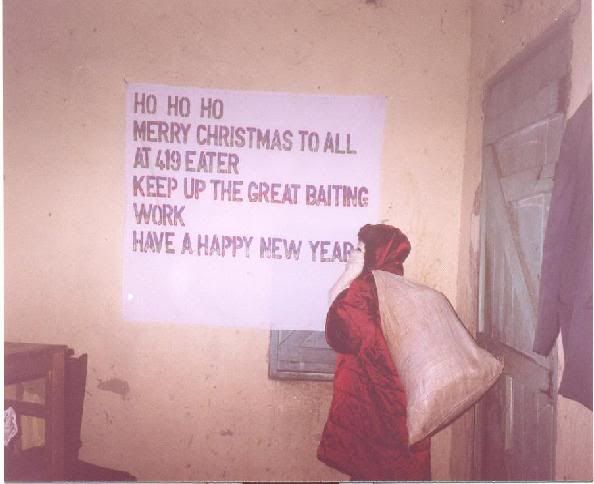 HO HO HO
MERRY CHRISTMAS TO ALL
AT 419 EATER
KEEP UP THE GREAT BAITING
WORK
HAVE A HAPPY NEW YEAR